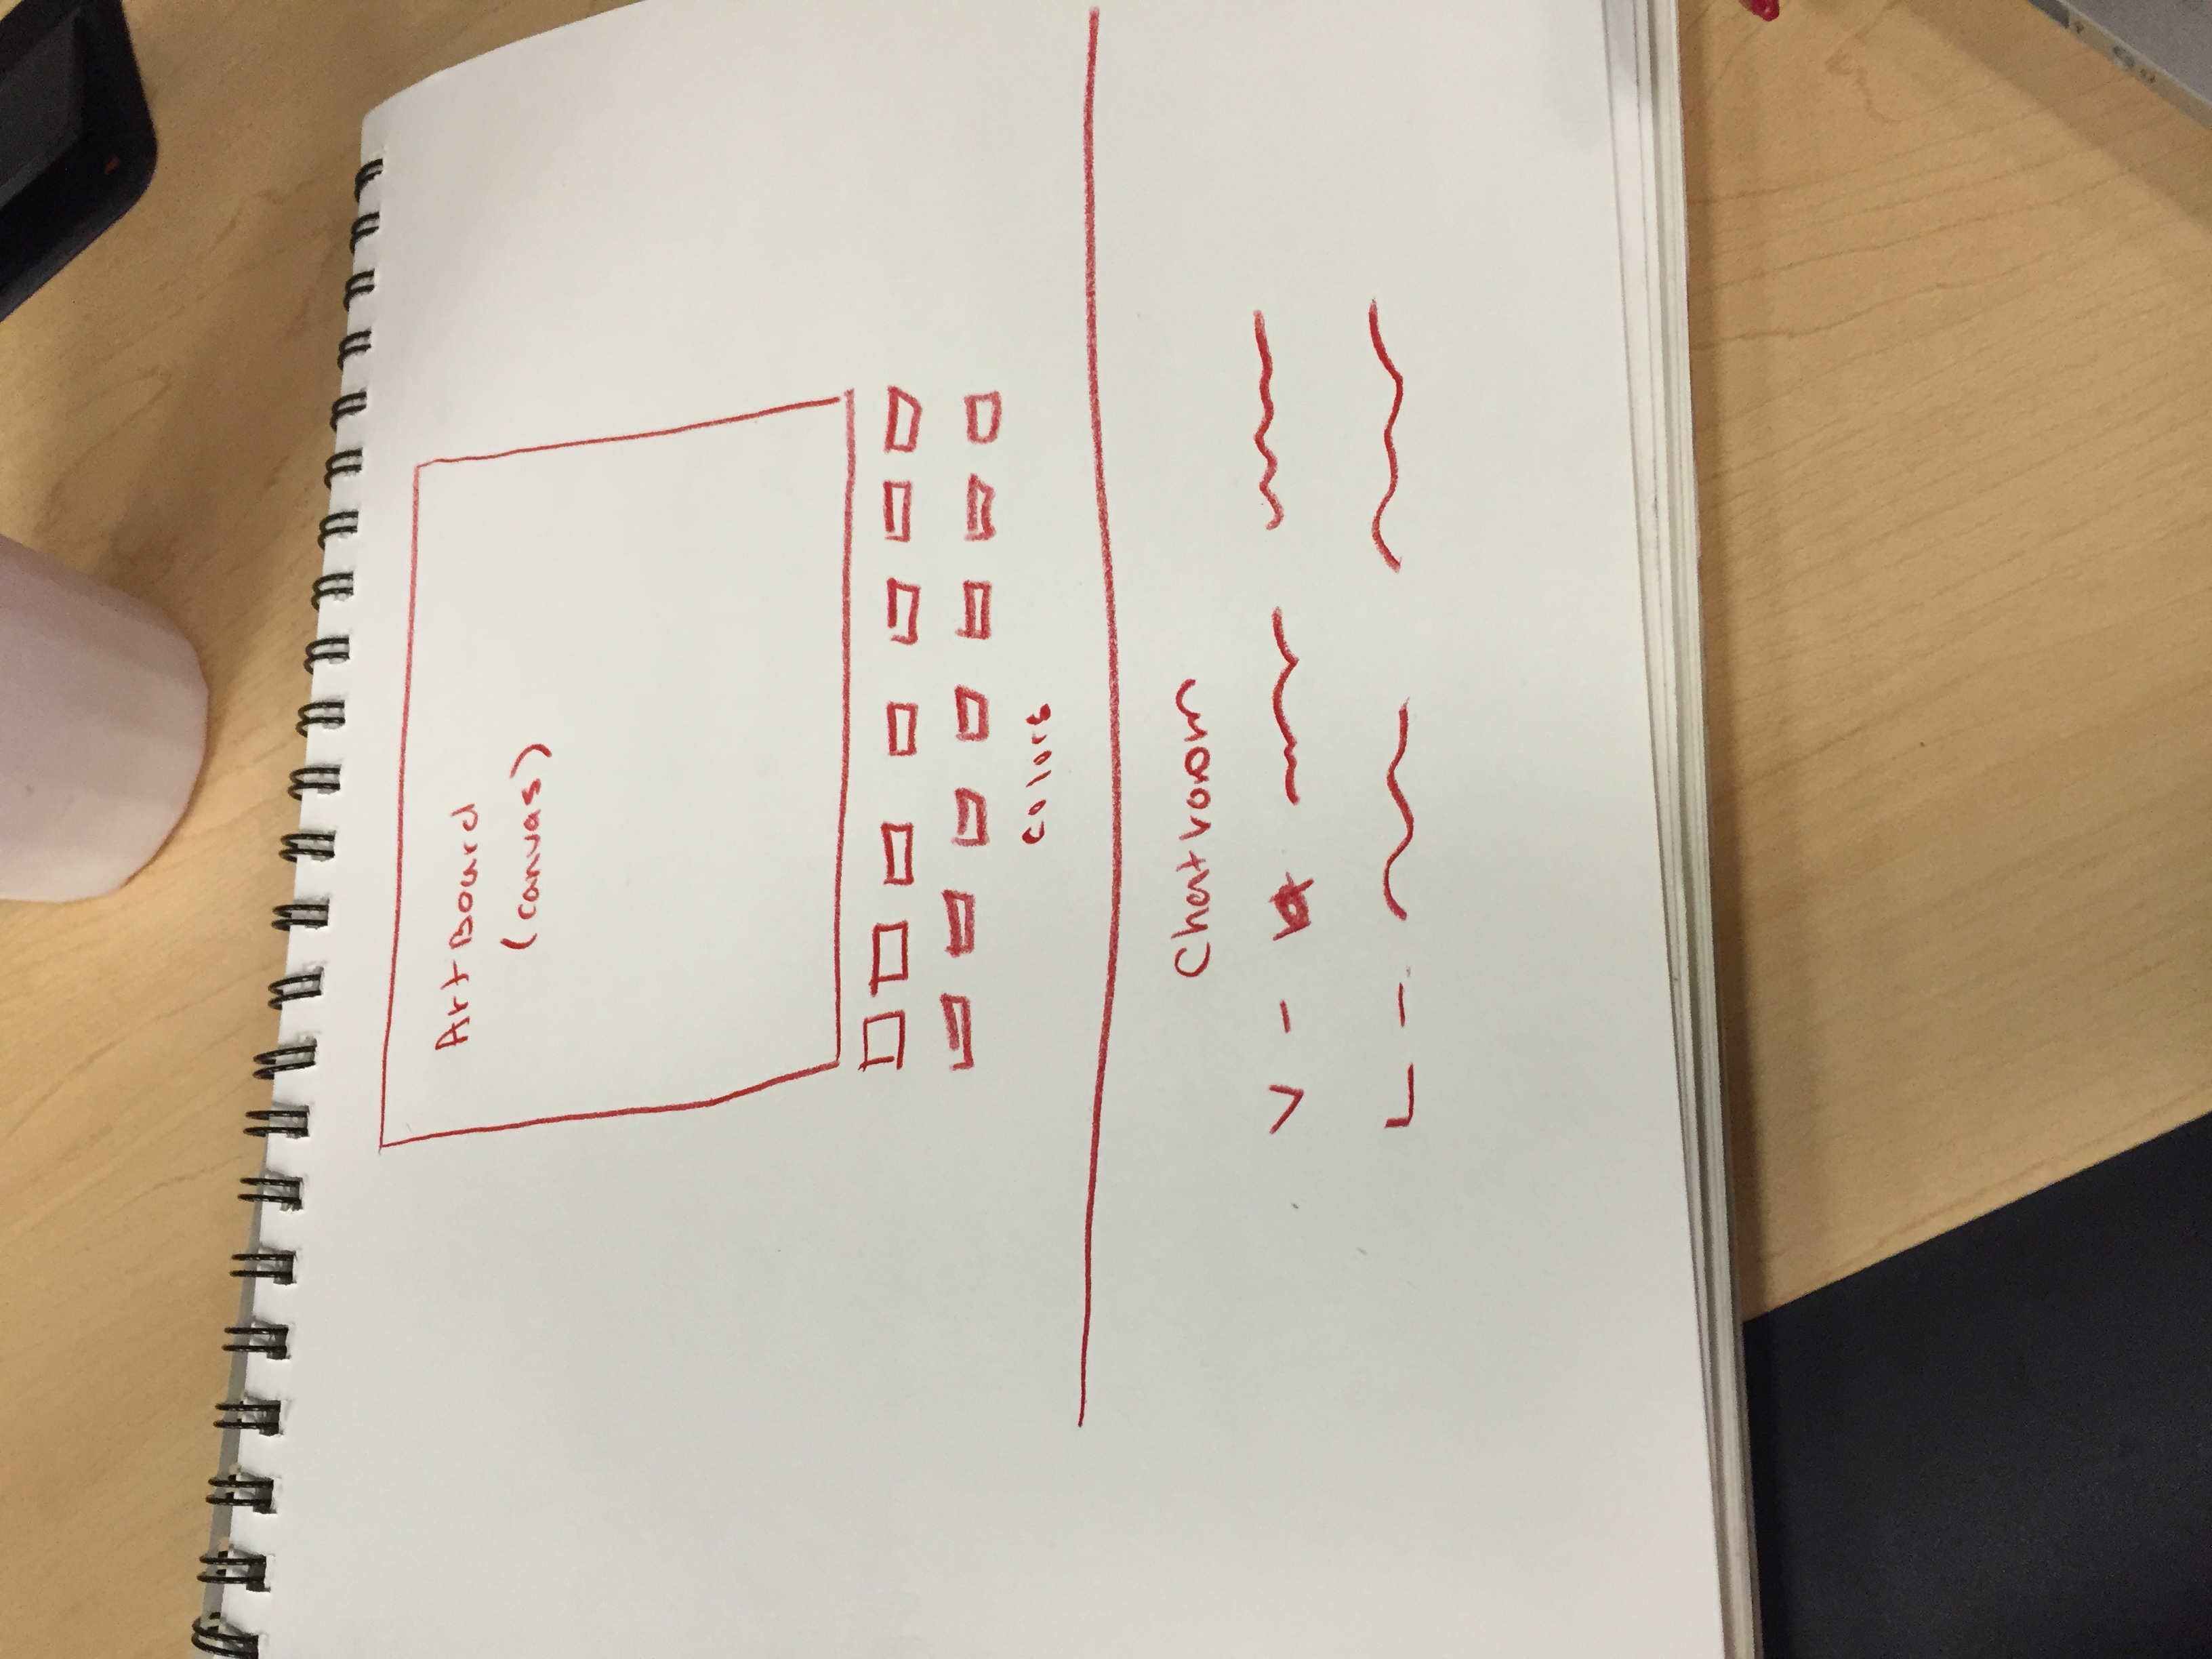 ArtBoard
(canvas)
colors
Chatroom
V -
L -